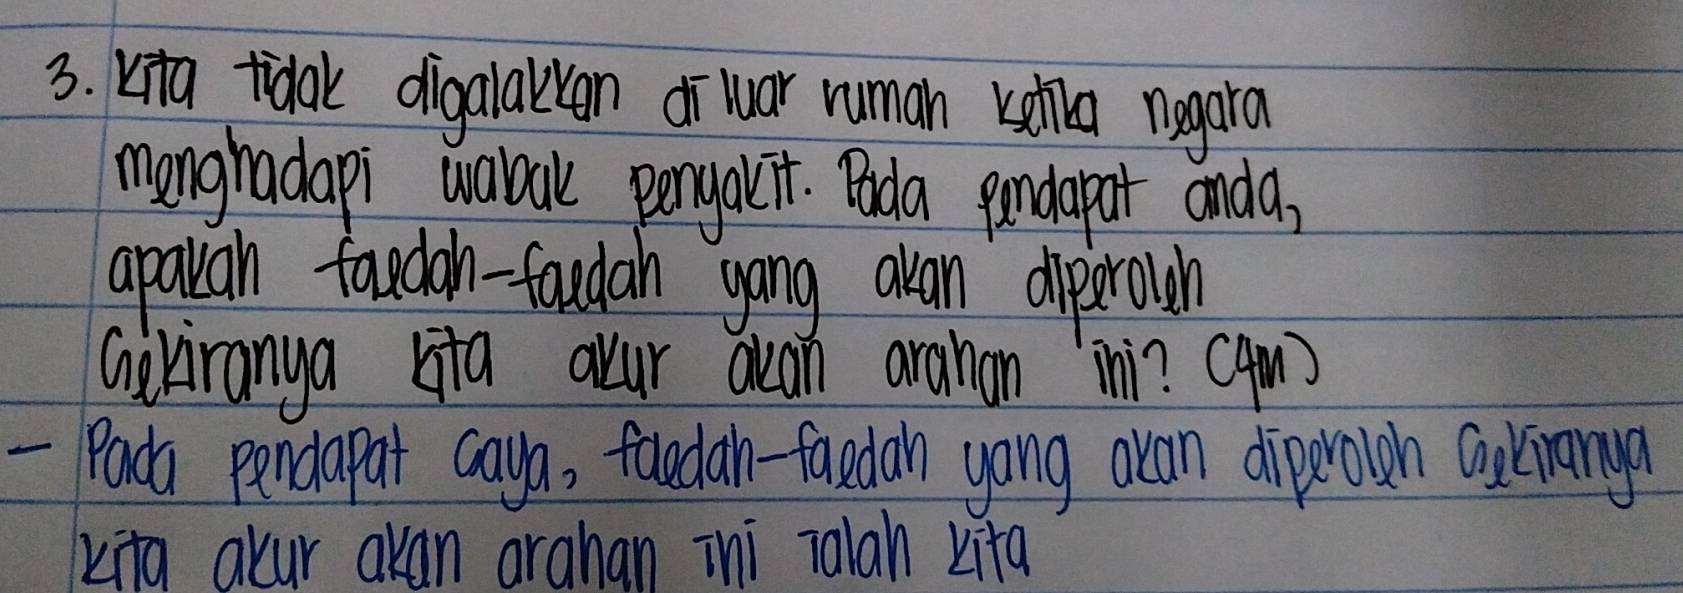 3. Kita tidak digalakkan di luar rumah ketika negara
menghadapi wabak penyakit. Pada pendapat anda,
apakah faedah-faedah yang akan diperoleh
Sekiranya kita akur akan arahan ini? (4m)
- Pada pendapat saya, faedah-faedah yang akan diperoleh sekiranya
kita akur akan arahan ini ialah kita